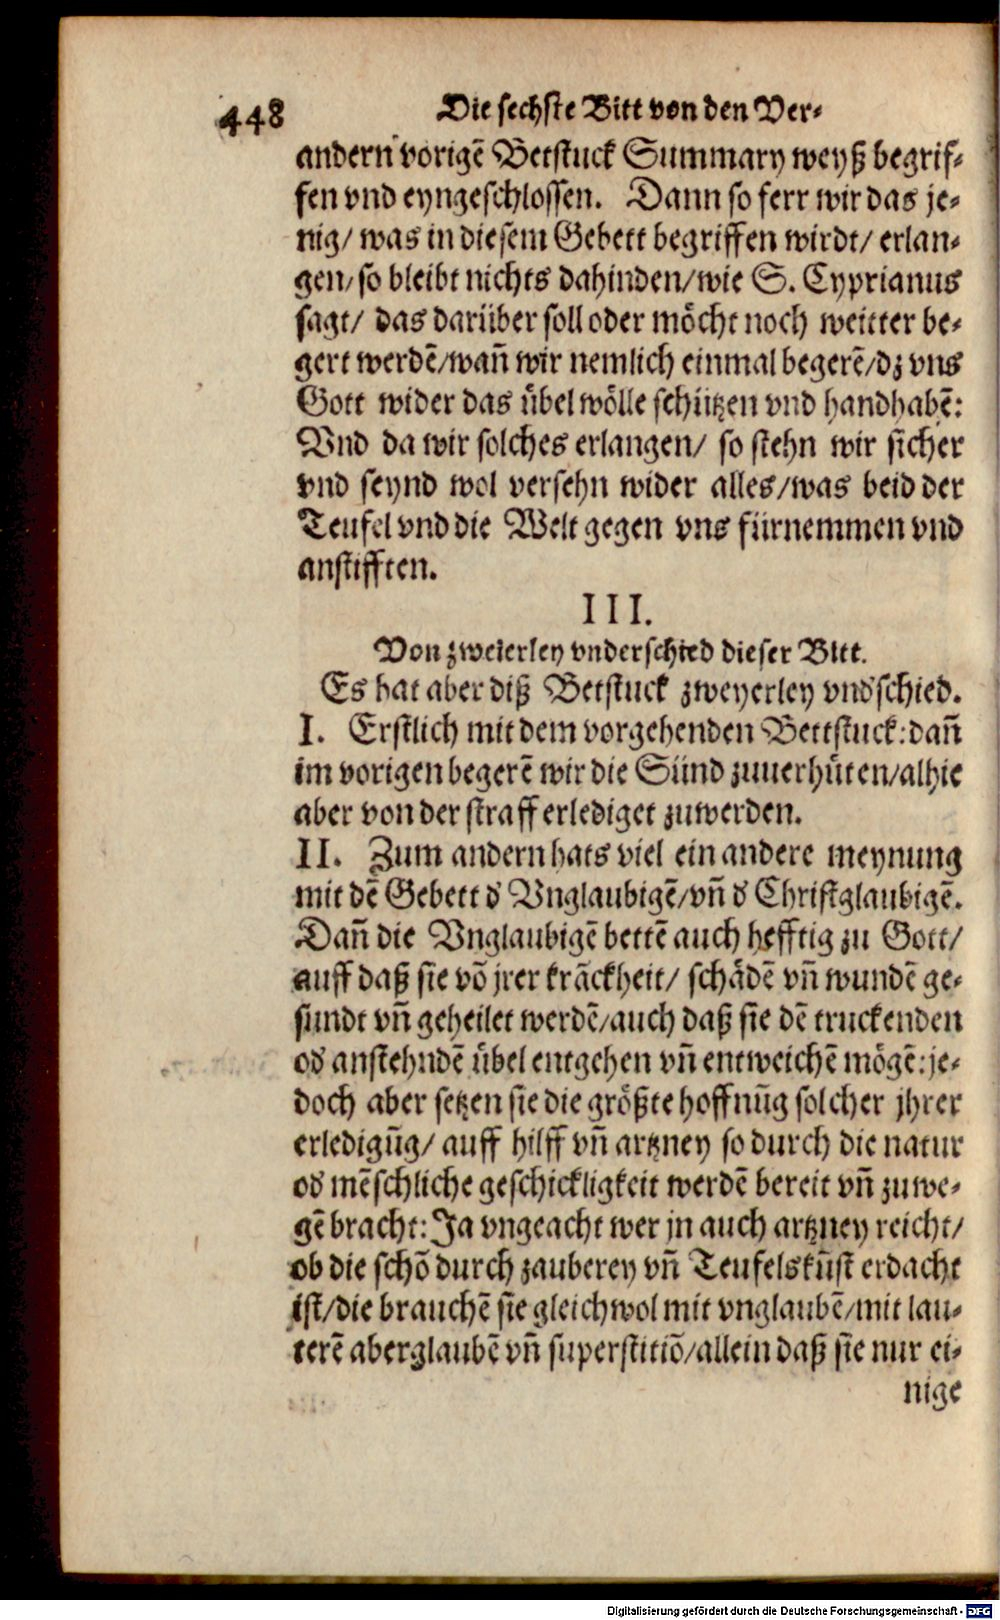 448
Die sechste Bitt von den Ver⸗
andern vorigē Betstuck Summary weyß begrif⸗
fen vnd eyngeschlossen. Dann so ferr wir das je⸗
nig/ was in diesem Gebett begriffen wirdt/ erlan⸗
gen/ so bleibt nichts dahinden/ wie S. Cyprianus
sagt/ das darüber soll oder möcht noch weitter be⸗
gert werdē/ wañ wir nemlich einmal begerē/ dz vns
Gott wider das übel wölle schützen vnd handhabē:
Vnd da wir solches erlangen/ so stehn wir sicher
vnd seynd wol versehn wider alles/ was beid der
Teufel vnd die Welt gegen vns fürnemmen vnd
anstifften.
III.
Von zweierley vnderschied dieser Bitt.
Es hat aber diß Betstuck zweyerley vnd'schied.
I. Erstlich mit dem vorgehenden Bettstuck: dañ
im vorigen begerē wir die Sünd zuuerhüten/ alhie
aber von der straff erlediget zuwerden.
II. Zum andern hats viel ein andere meynung
mit dē Gebett d' Vnglaubigē/ vñ d' Christglaubigē.
Dañ die Vnglaubigē bettē auch hefftig zu Gott/
auff daß sie võ jrer krãckheit/ schädē vñ wundē ge⸗
sundt vñ geheilet werdē/ auch daß sie dē truckenden
od' anstehndē übel entgehen vñ entweichē mögē: je⸗
doch aber setzen sie die größte hoffnũg solcher jhrer
erledigũg/ auff hilff vñ artzney so durch die natur
od' mēschliche geschickligkeit werdē bereit vñ zuwe⸗
gē bracht: Ja vngeacht wer jn auch artzney reicht/
ob die schõ durch zauberey vñ Teufelskũst erdacht
ist/ die brauchē sie gleichwol mit vnglaubē/ mit lau⸗
terē aberglaubē vñ superstitiõ/ allein daß sie nur ei⸗
nige
Digitalisierung gefördert durch die Deutsche Forschungsgemeinschaft - DFG